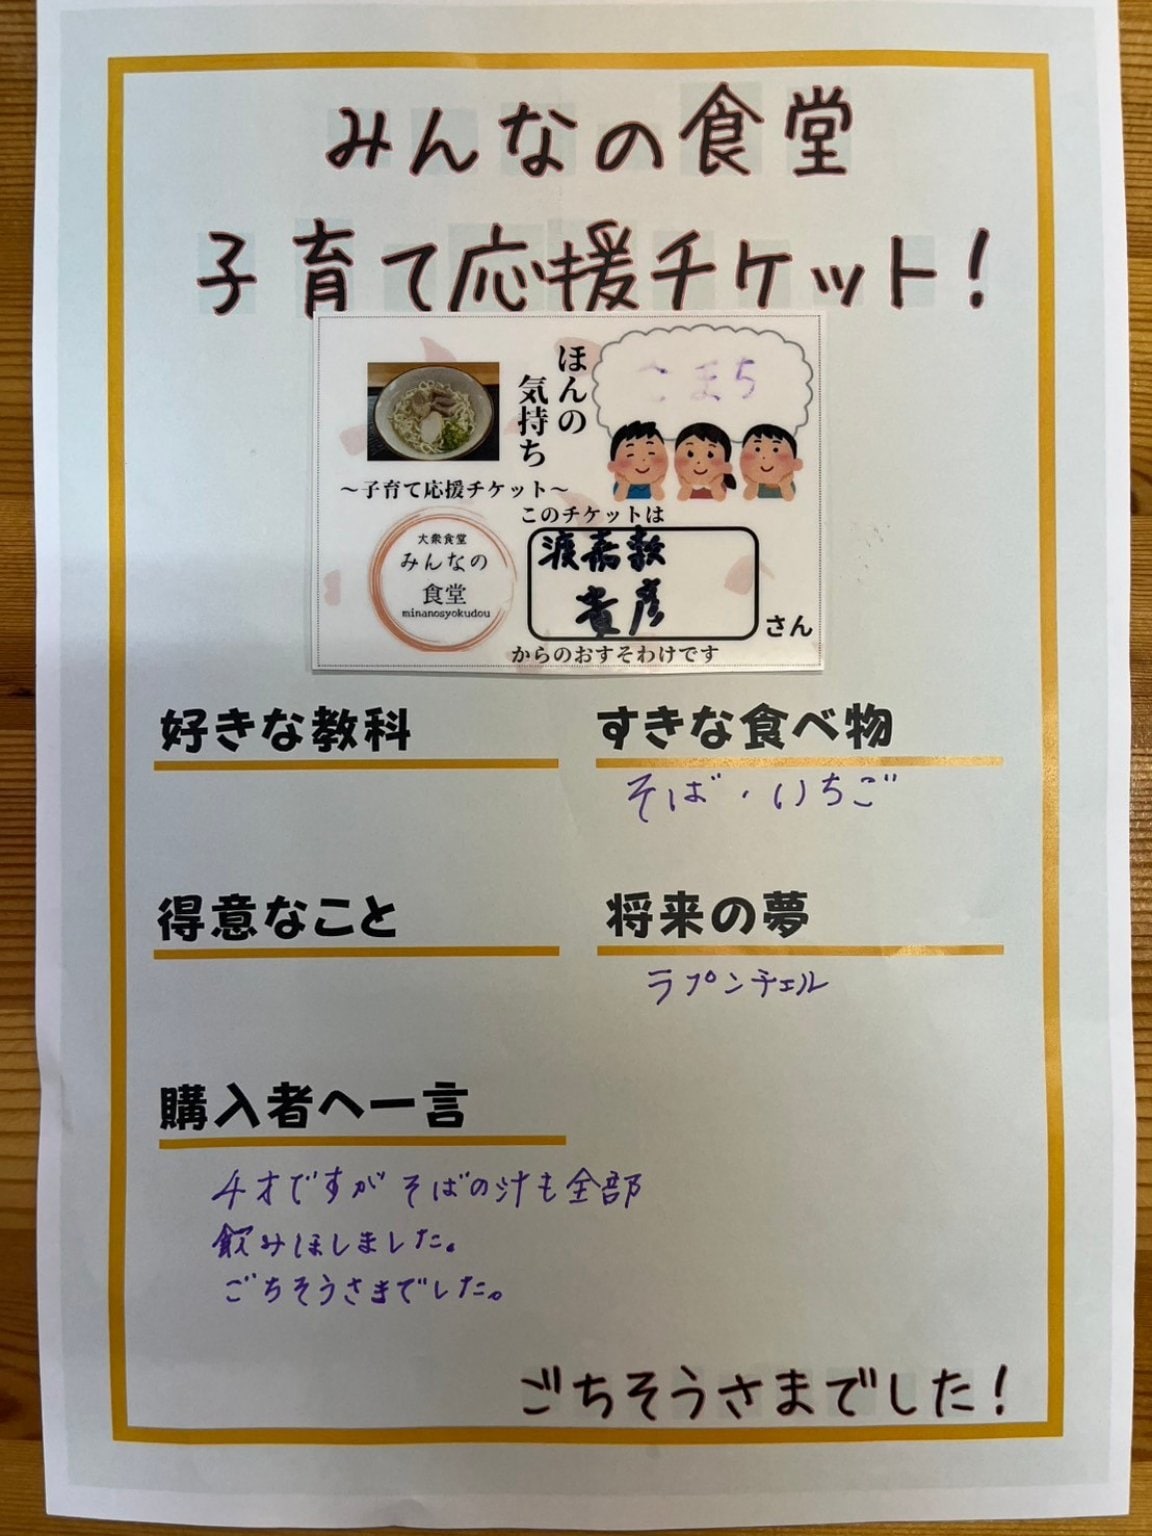 みんなの食堂
子育て応援チケット!
ほんの
気持ち
こまち
～子育て応援チケット～
大衆食堂
みんなの
食堂
minanosyokudou
このチケットは
渡嘉敷
貴彦
さん
からのおすそわけです
好きな教科
すきな食べ物
そば・いちご
得意なこと
将来の夢
ラプンチェル
購入者へ一言
4才ですがそばの汁も全部
飲みほしました。
ごちそうさまでした。
ごちそうさまでした!